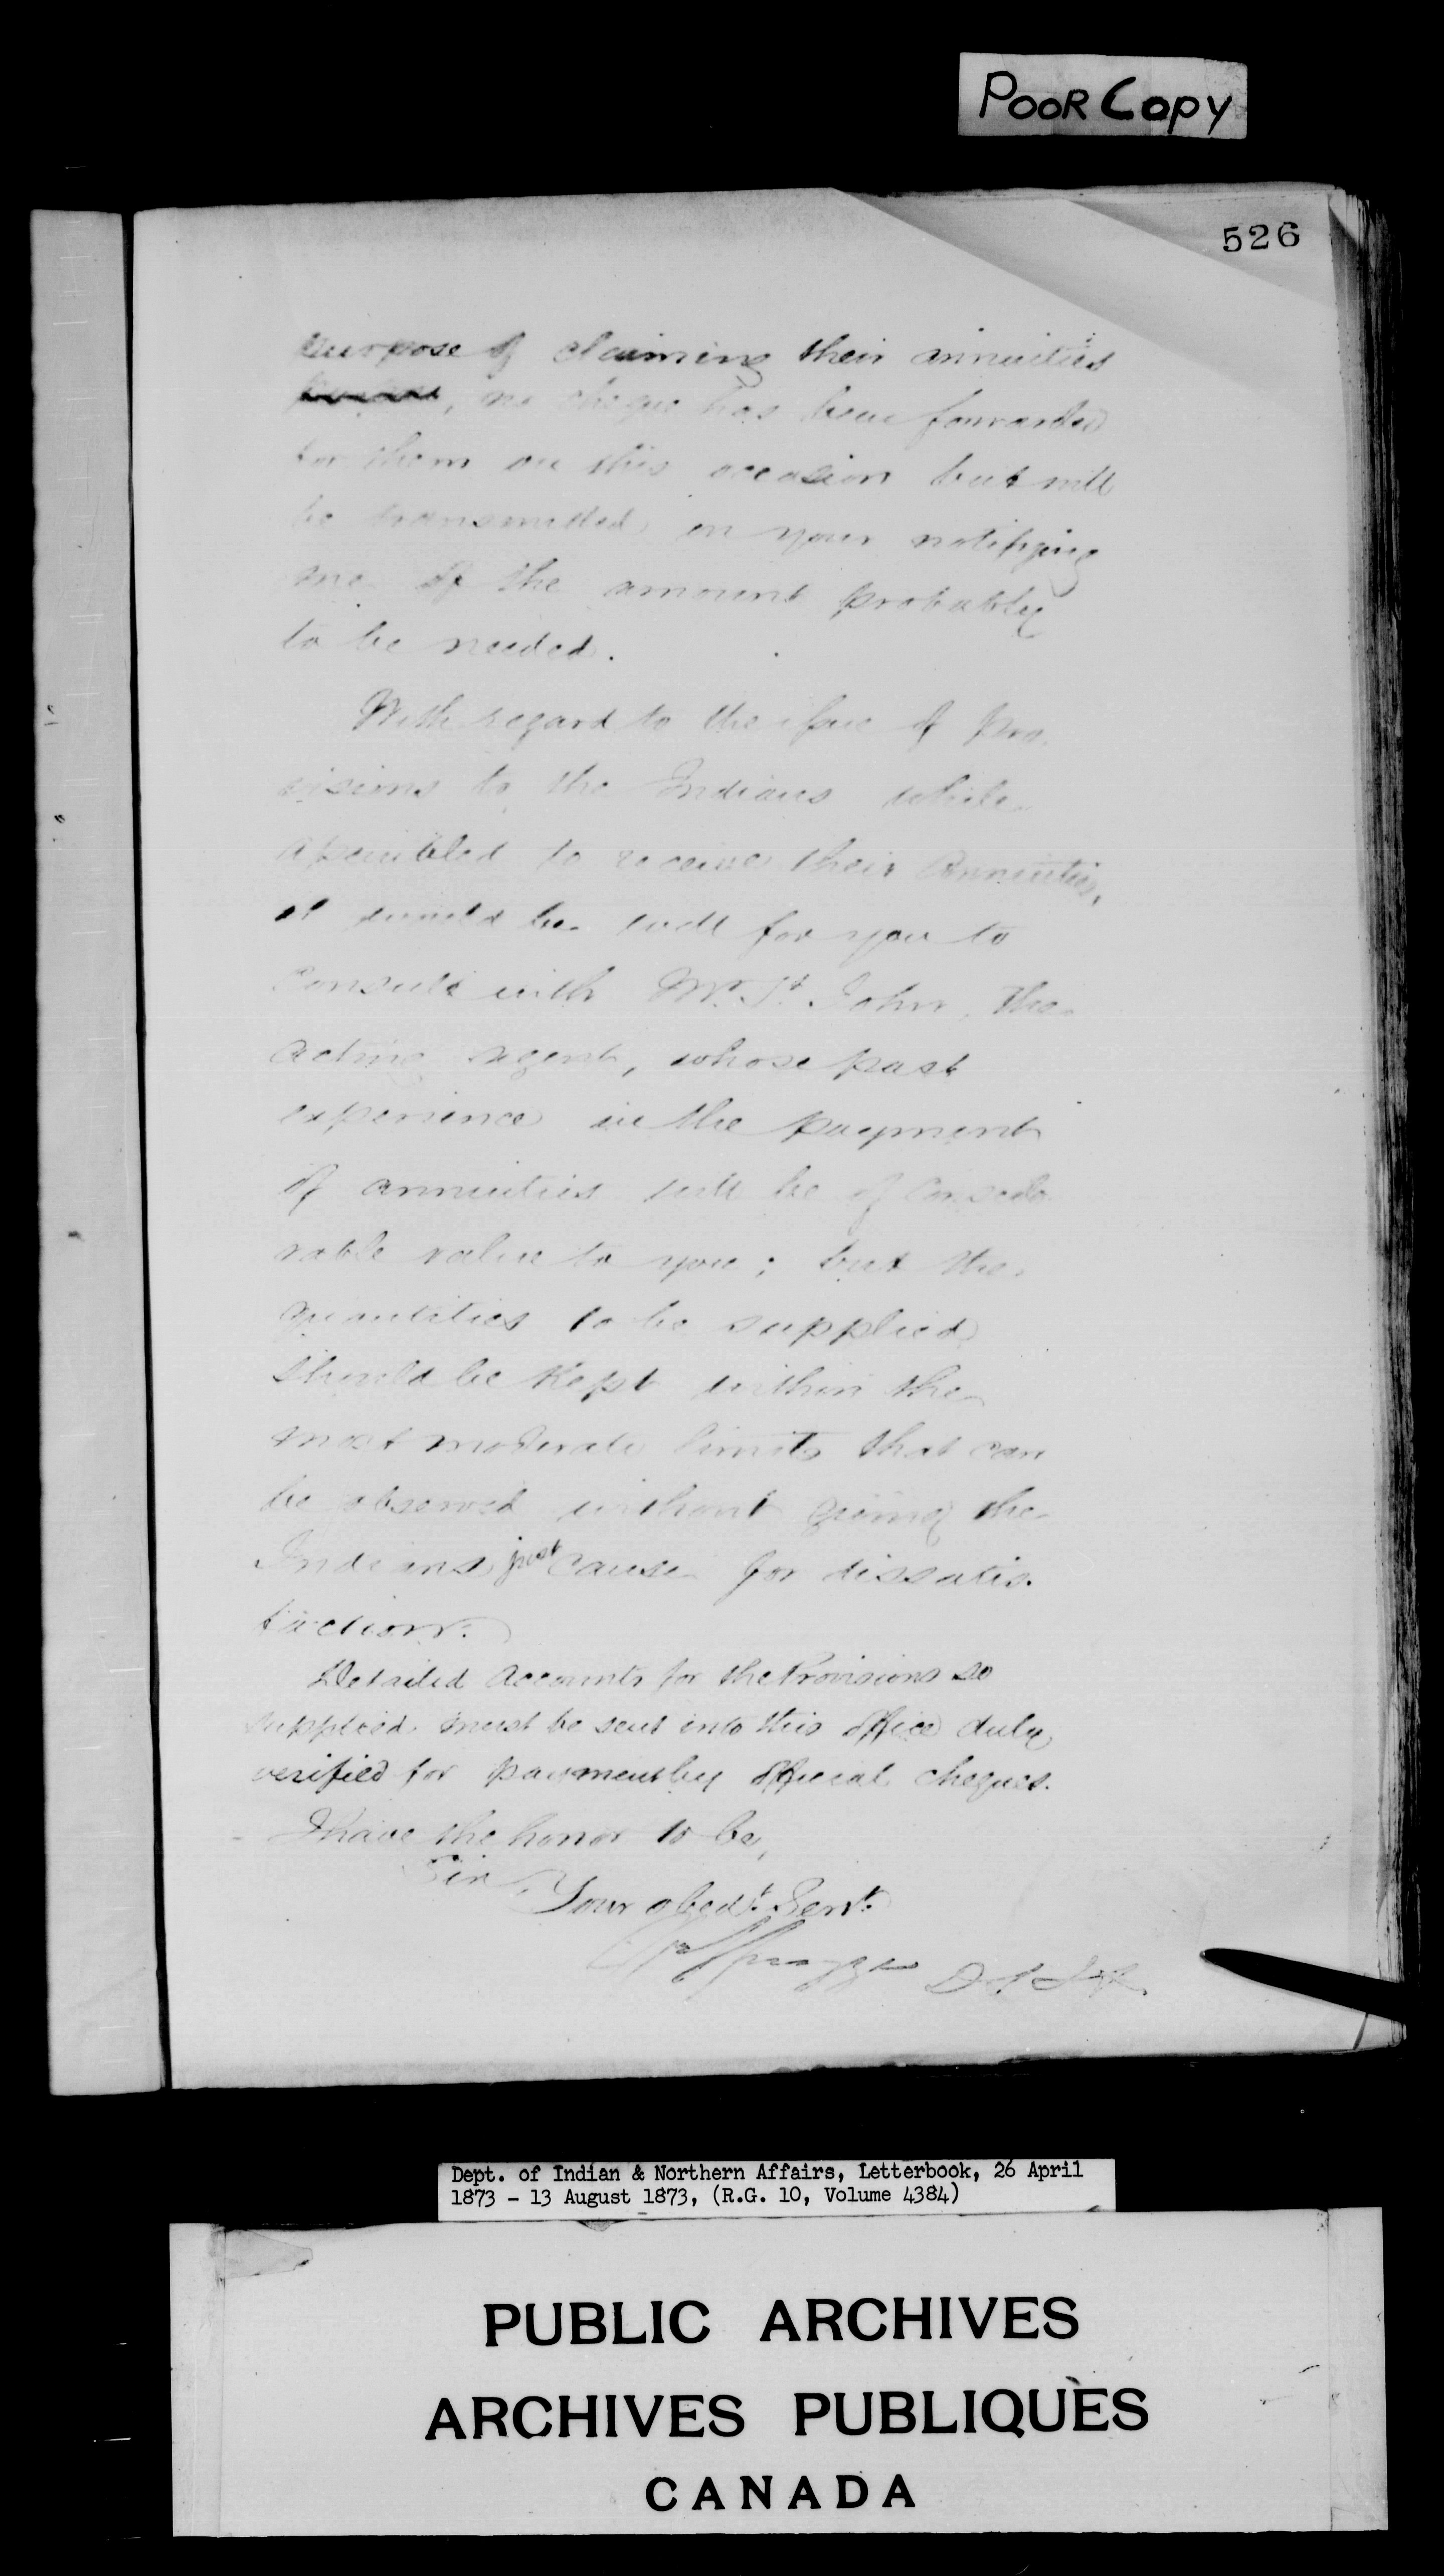 POOR COPY
526
purpose of claiming their annuities
, no cheque has been forwarded
for them on this occasion but will
be transmitted on your notifying
me of the amount probably
to be needed.
With regard to the issue of pro-
visions to the Indians while
assembled to receive their Annuities,
it would be well for you to
consult with Mr. St. John, the
acting agent, whose past
experience in the payment
of annuities will be of conside
rable value to you; but the
quantities to be supplied
should be kept within the
most moderate limits that can
be observed without giving the
Indians just cause for dissatis-
faction.
Detailed Accounts for the Provisions so
supplied must be sent into this office duly
verified for payment by official cheques.
I have the honor to be,
Sir
Your obedt. Servt.
Spragge D.S.I.A.
Dept. of Indian & Northern Affairs, Letterbook, 26 April
1873 - 13 August 1873, (R.G. 10, Volume 4384)
PUBLIC ARCHIVES
ARCHIVES PUBLIQUES
CANADA